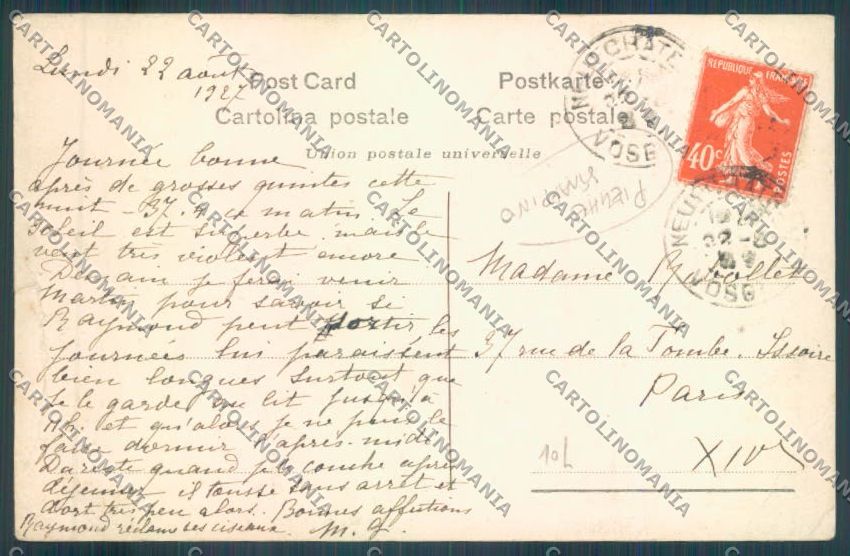 Lundi 22 août
1927
Post Card Postkarte
Cartolina postale Carte postale
Union postale universelle
Journée bonne
après de grosses quintes cette
nuit - 37.4 ce matin. Le
soleil est superbe mais le
vent très violent encore
Demain je ferai venir
Martin pour savoir si
Raymond peut sortir les
journées lui paraissent
bien longues surtout que
je le garde au lit jusqu'à
et qu'alors je ne puis le
faire dormir l'après-midi
Du reste quand je le couche après
déjeuner il tousse sans arrêt et
dort très peu alors. Bonnes affections
Raymond réclame ses ciseaux. M. G.
Madame
97 rue de la Tombe. Issoire
Paris
XIVe
10L
PIEGHE
NEUFCHATEAU
VOSGES
REPUBLIQUE FRANÇAISE
40c
POSTES
NEUFCHATEAU
22-8
VOSGES
CARTOLINOMANIA